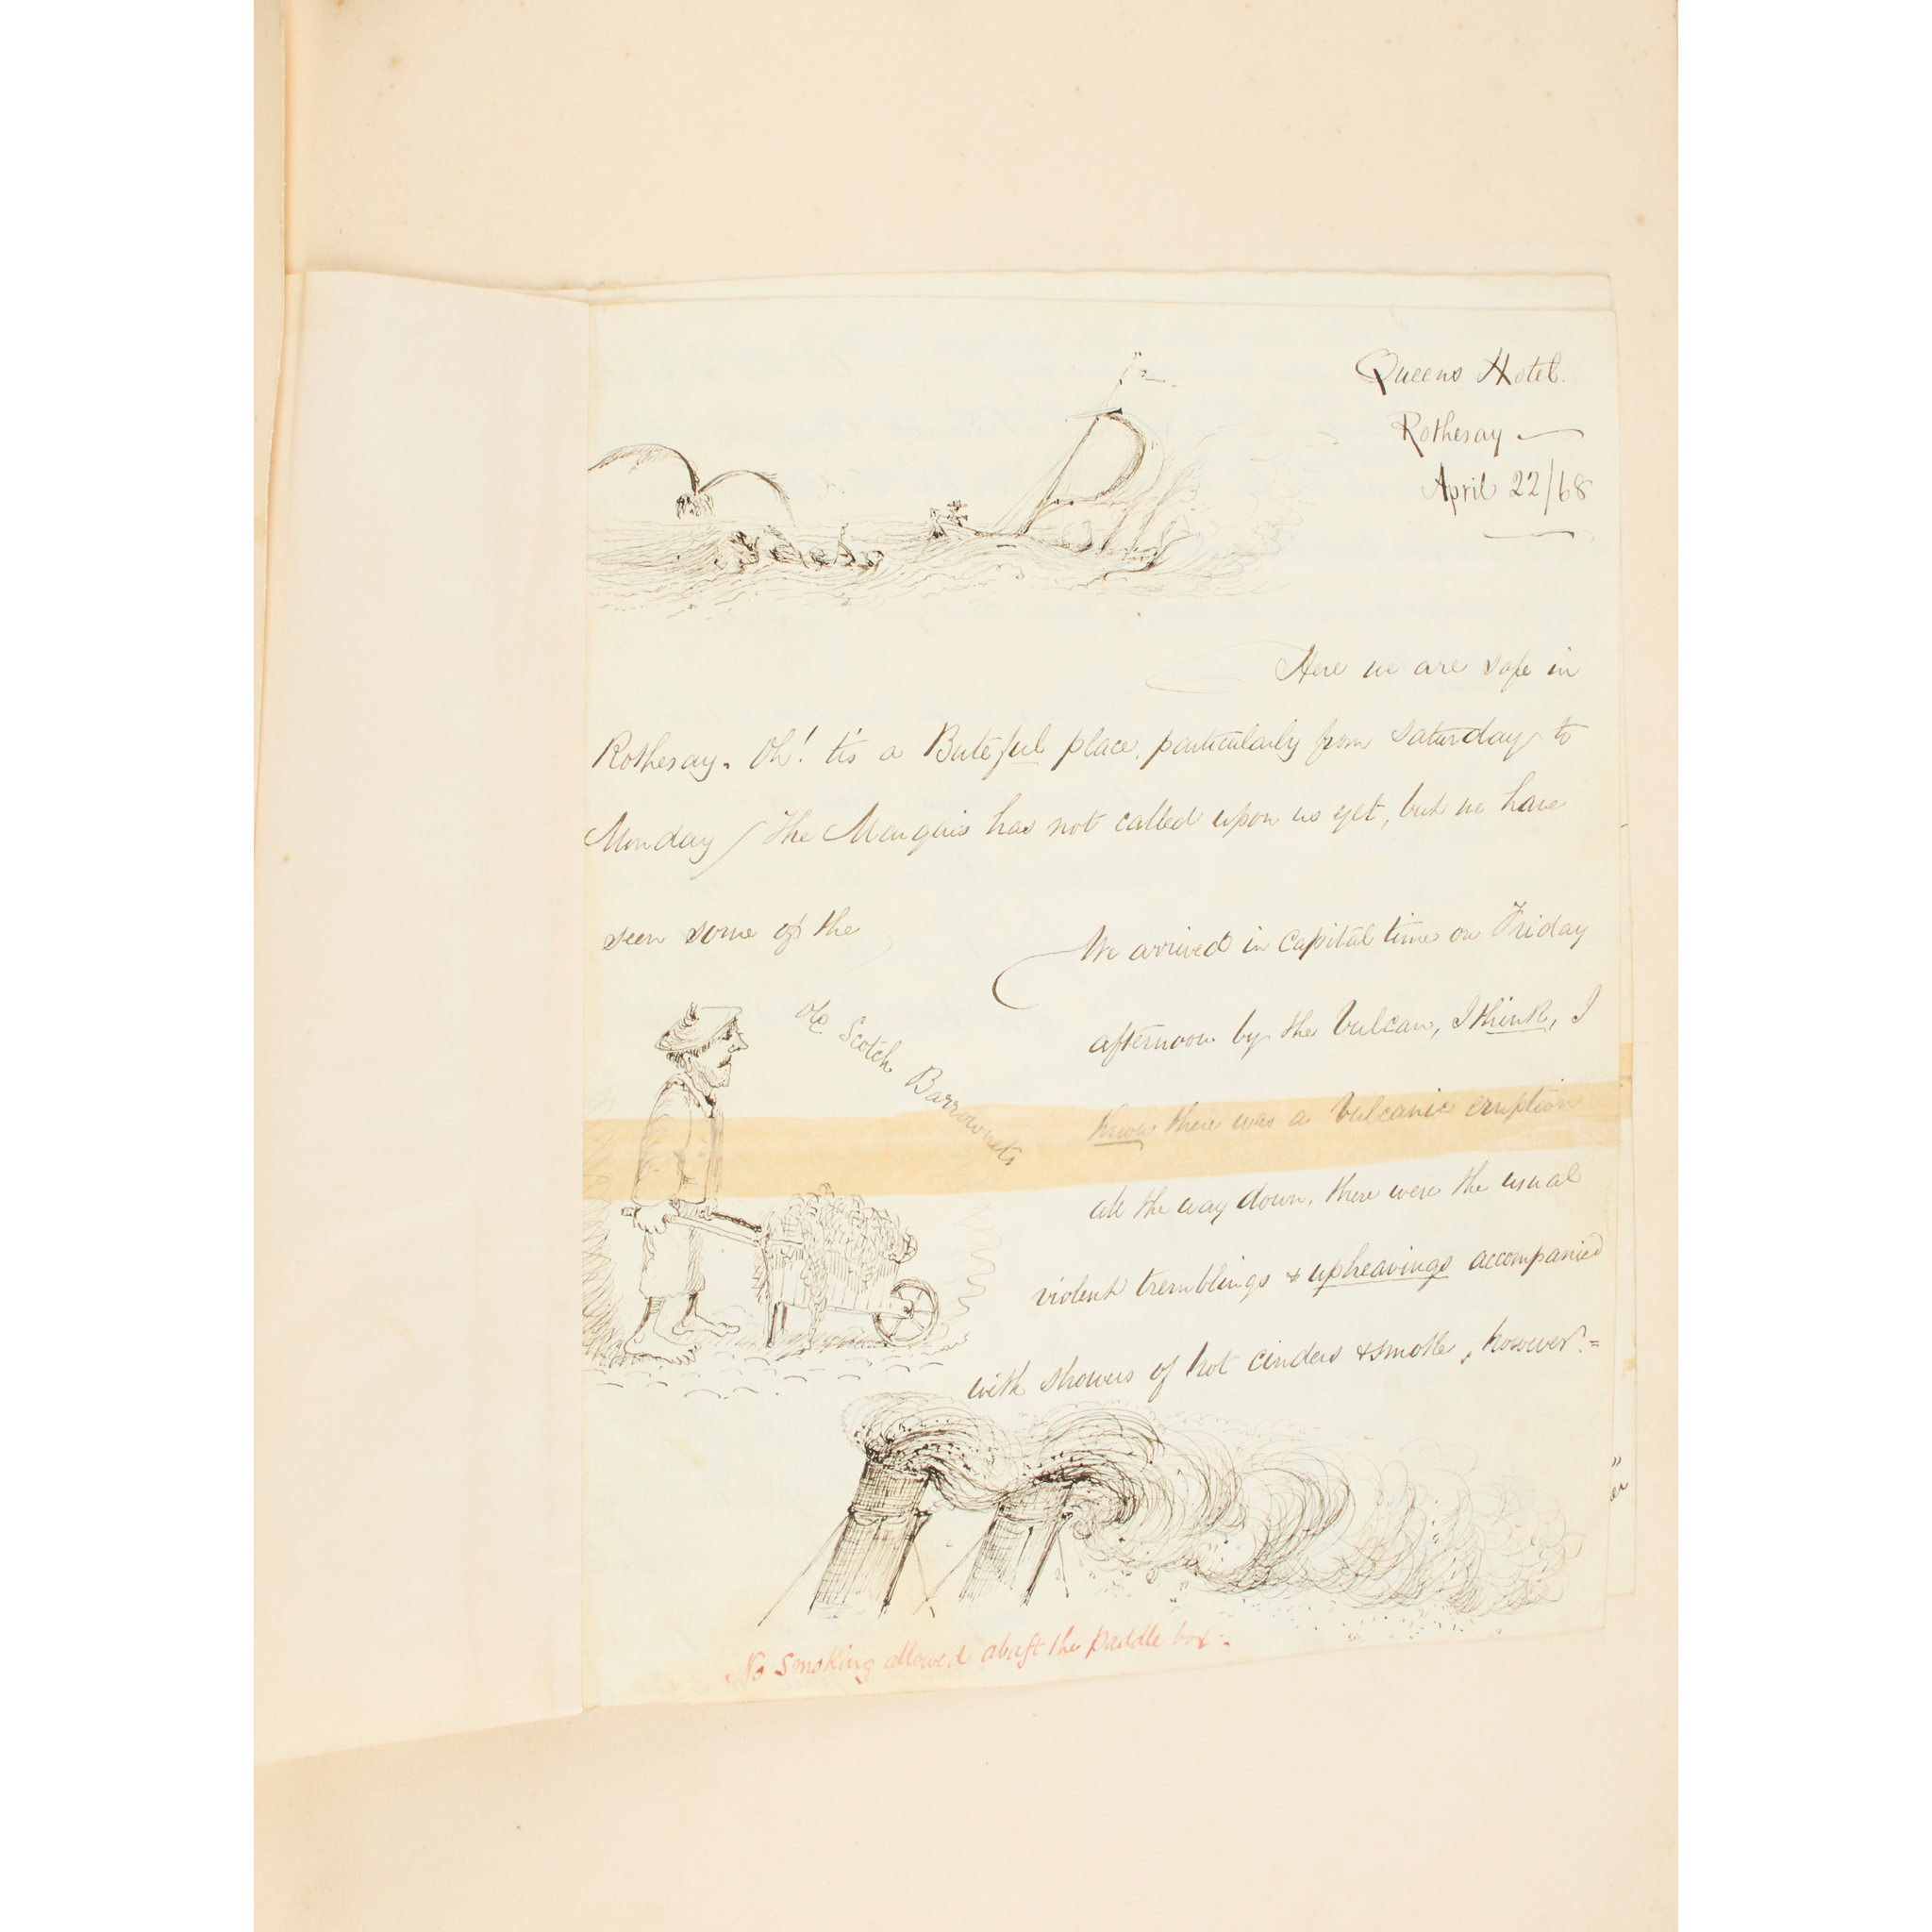 Queens Hotel.
Rothesay
April 22/68
Here we are safe in
Rothesay. Oh! tis a Buteful place, particularly from Saturday to
Monday / The Marquis has not called upon us yet, but we have
seen some of the
Scotch Barrownets
We arrived in Capital time on Friday
afternoon by the Vulcan, I think, I
know there was a Vulcanic eruption
all the way down, there were the usual
violent tremblings & upheavings accompanied
with showers of hot cinders & smoke, however.=
No Smoking allowed abaft the paddle box.